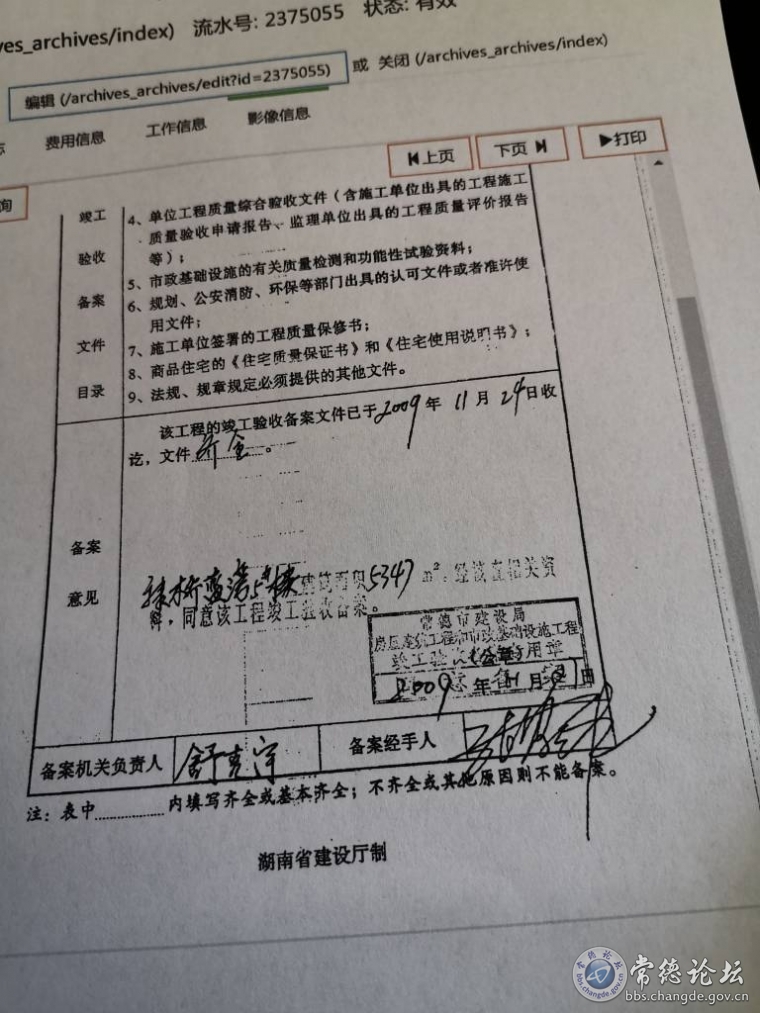 ves_archives/index) 流水号: 2375055 状态: 有效
编辑 (/archives_archives/edit?id=2375055) 或 关闭 (/archives_archives/index)
费用信息 工作信息 影像信息
上页 下页 打印
询
竣工
验收
备案
文件
目录
4、单位工程质量综合验收文件（含施工单位出具的工程施工
质量验收申请报告、监理单位出具的工程质量评价报告
等）；
5、市政基础设施的有关质量检测和功能性试验资料；
6、规划、公安消防、环保等部门出具的认可文件或者准许使
用文件；
7、施工单位签署的工程质量保修书；
8、商品住宅的《住宅质量保证书》和《住宅使用说明书》；
9、法规、规章规定必须提供的其他文件。
该工程的竣工验收备案文件已于2009年11月24日收
讫，文件齐全。
备案
意见
建筑面积5347m²，经核查相关资
料，同意该工程竣工验收备案。
常德市建设局
房屋建筑工程和市政基础设施工程
竣工验收 (公章) 用章
2009年11月 日
备案机关负责人 舒克宇 备案经手人
注：表中............内填写齐全或基本齐全；不齐全或其他原因则不能备案。
湖南省建设厅制
常德论坛
bbs.changde.gov.cn